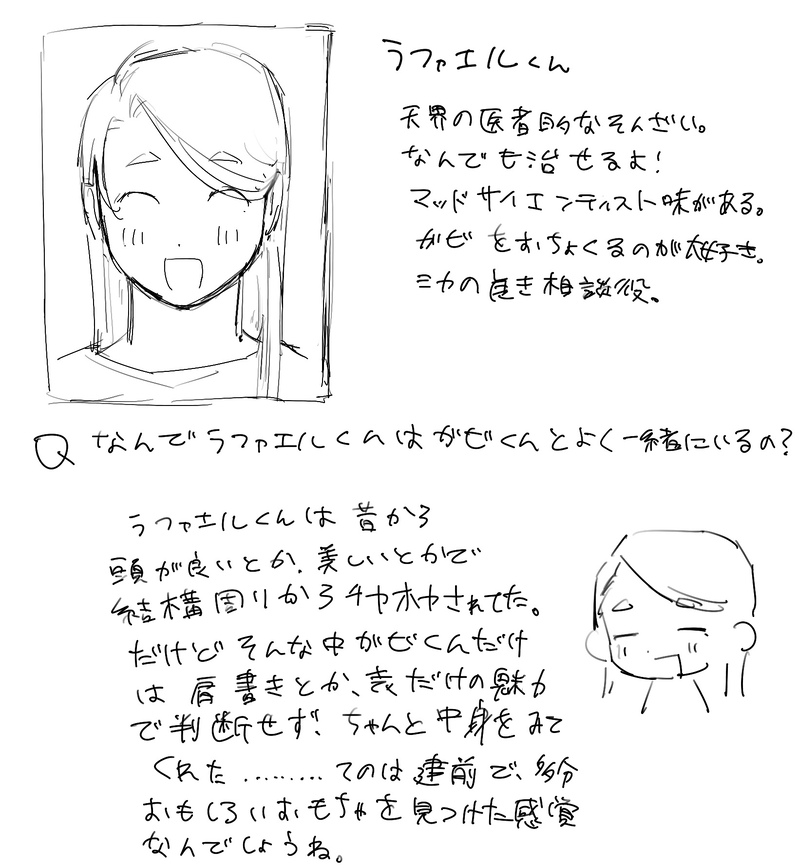 ラファエルくん
天界の医者的なそんざい。
なんでも治せるよ!
マッドサイエンティスト味がある。
ガビをおちょくるのが大好き。
ミカの良き相談役。
Q なんでラファエルくんはガビくんとよく一緒にいるの?
ラファエルくんは昔から
頭が良いとか、美しいとかで
結構周りからチヤホヤされてた。
だけどそんな中ガビくんだけ
は肩書きとか、表だけの魅力
で判断せず、ちゃんと中身をみて
くれた………てのは建前で、多分
おもしろいおもちゃを見つけた感覚
なんでしょうね。